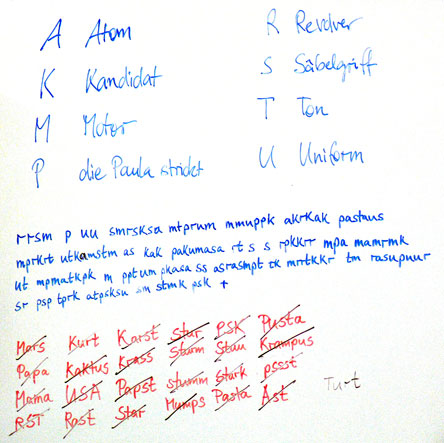 A Atom
K Kandidat
M Motor
P die Paula strickt
R Revolver
S Säbelgriff
T Ton
U Uniform
rrsm p uu smrsksa mtprum mmuppk akrkak pastmus
mprkrt utkamstm as kak pakumasa rt s s rpkkrr mpa mamrmk
ut mpmatkpk m pptum pkasa ss asrasmpt tk mrtkkr tm rasupuur
sr psp tprk atpsksu um stmk psk +
Mars Kurt Karst Star PSK Pusta
Papa Kaktus Krass Sturm Stau Krampus
Mama USA Papst stumm Stark pssst
RST Rast Star Mumps Pasta Ast
Turt